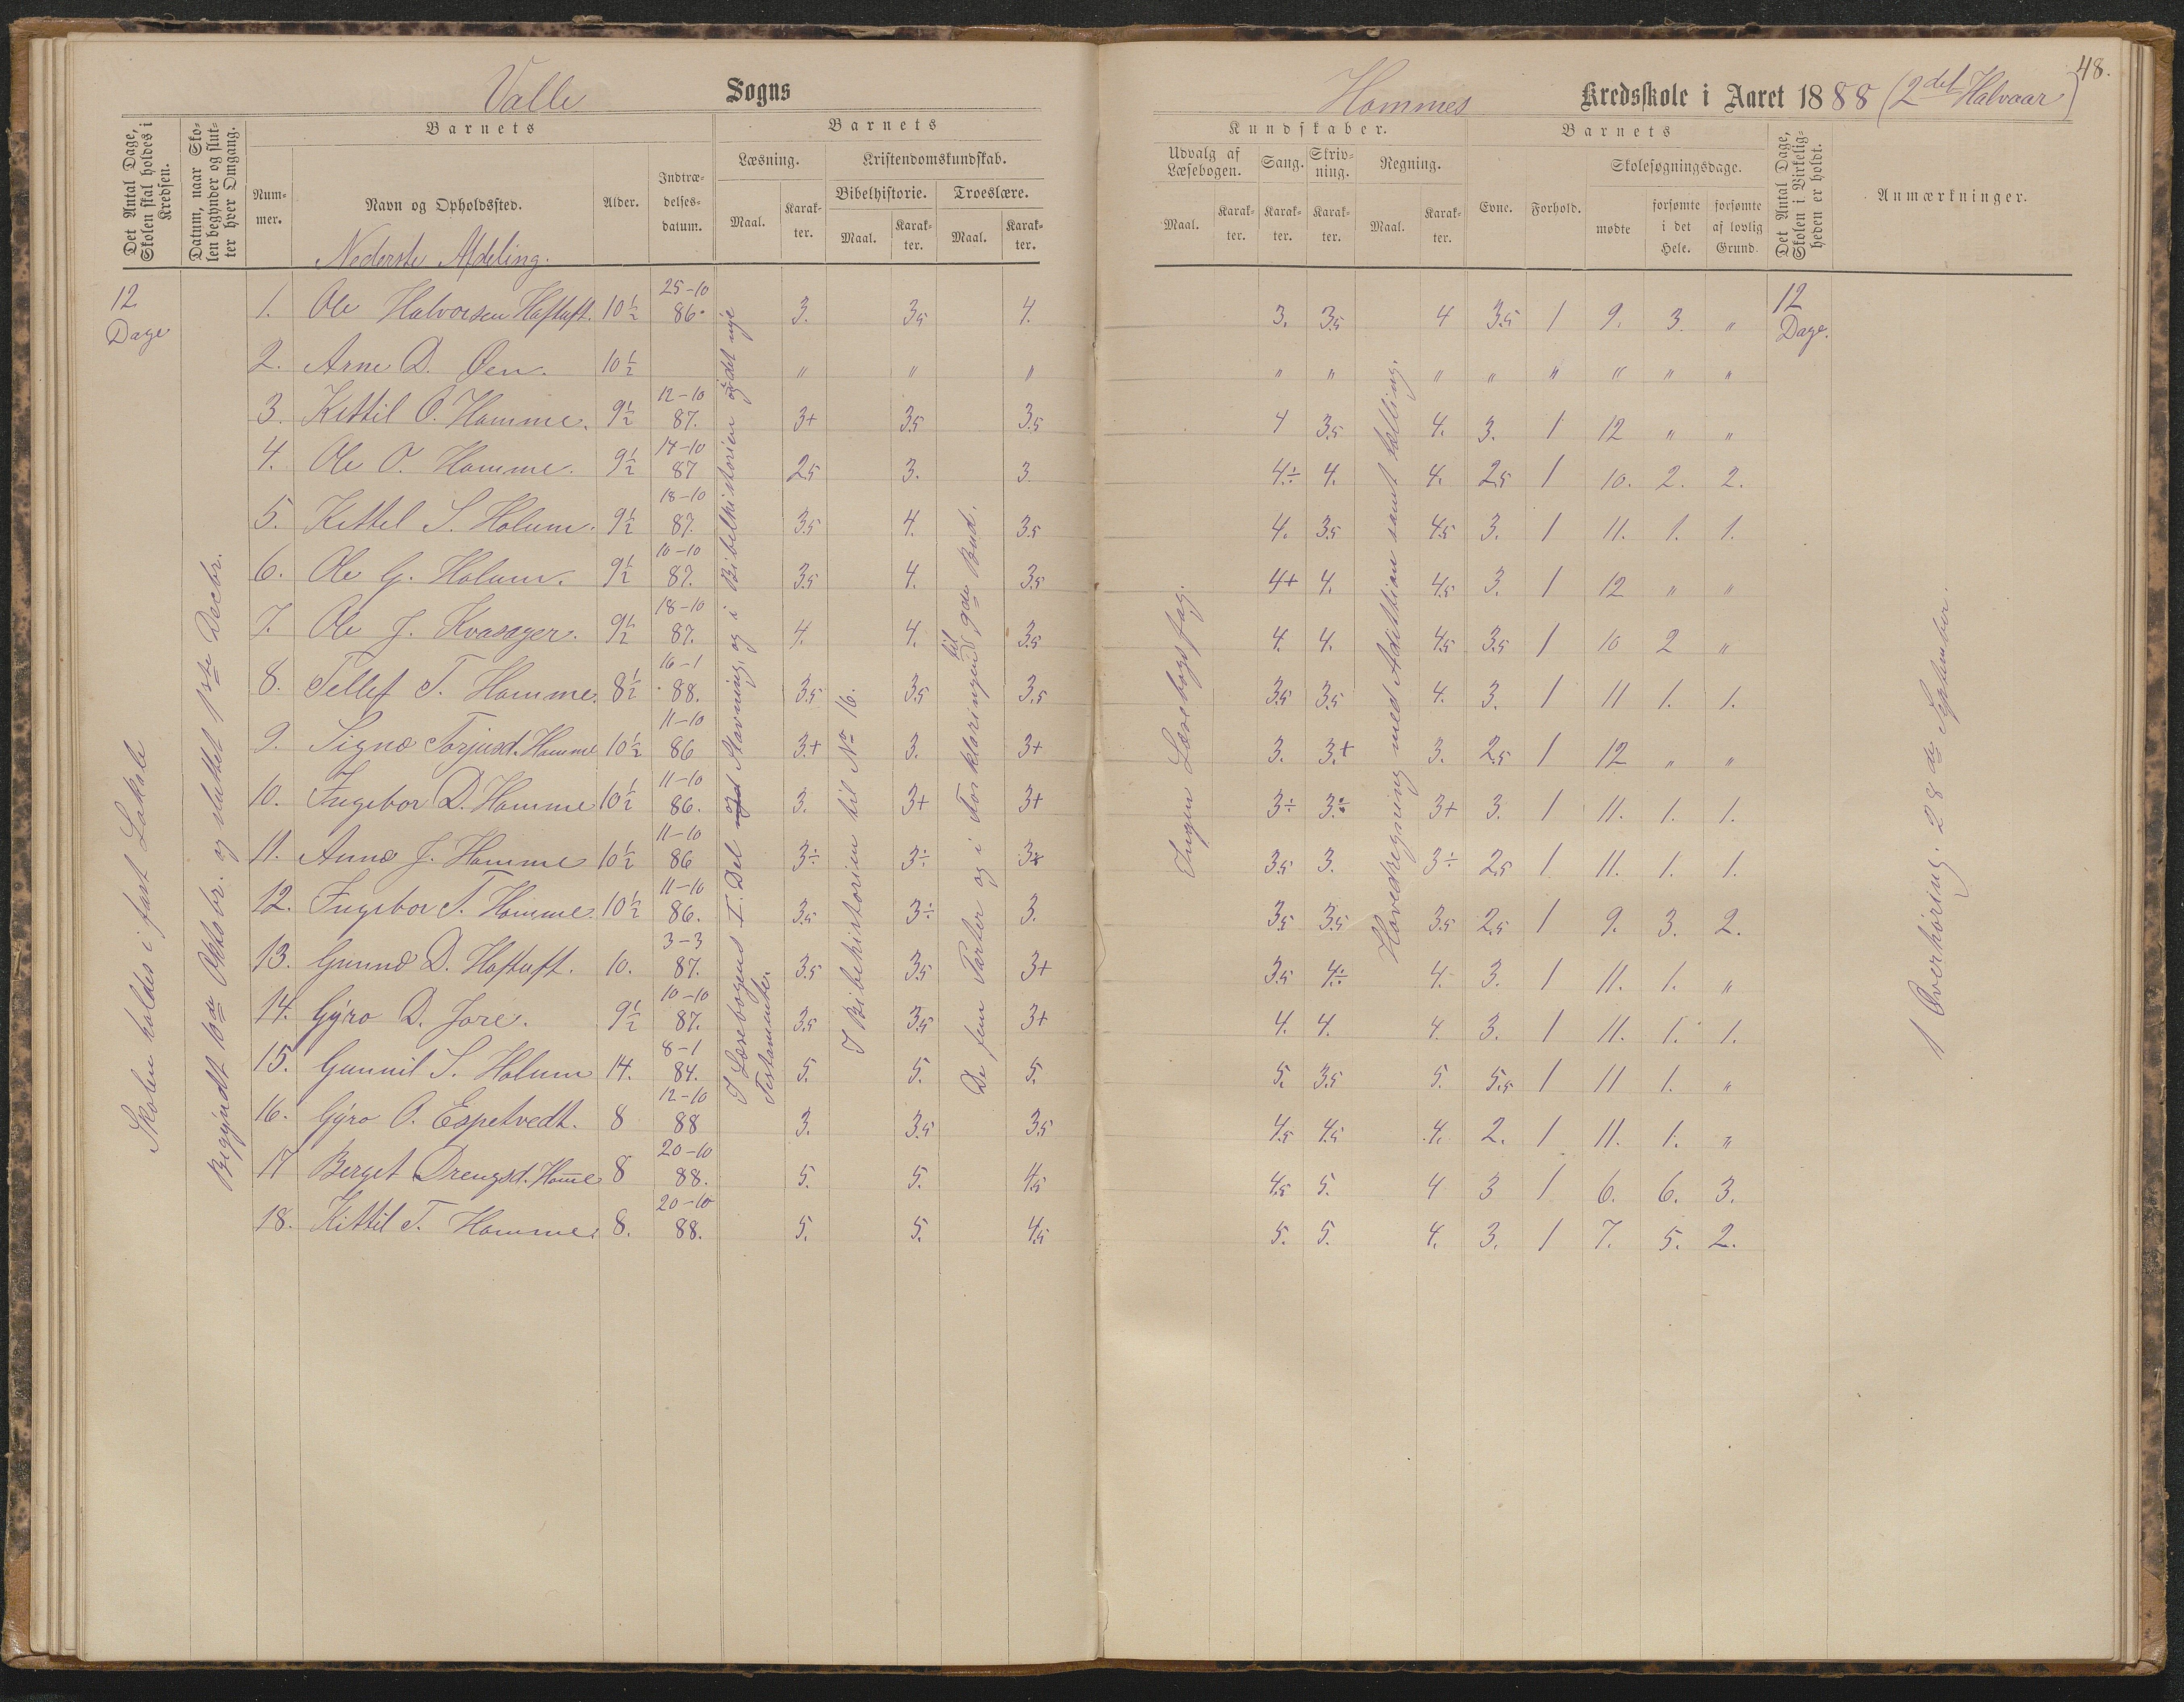 48.
Valle Sogns
Hommes Kredsskole i Aaret 1888 (2det Halvaar)
Det Antal Dage, Skolen skal holdes i Kredsen.
Datum, naar Skolen begynder og slutter hver Omgang.
Barnets
Nummer.
Navn og Opholdssted.
Alder.
Indtrædelsesdatum.
Barnets
Læsning.
Maal.
Karakter.
Kristendomskundskab.
Bibelhistorie.
Maal.
Karakter.
Troeslære.
Maal.
Karakter.
Kundskaber.
Udvalg af Læsebogen.
Maal.
Karakter.
Sang.
Karakter.
Skrivning.
Karakter.
Regning.
Maal.
Karakter.
Barnets
Evne.
Forhold.
Skolesøgningsdage.
mødte
forsømte i det Hele.
forsømte af lovlig Grund.
Det Antal Dage, Skolen i Virkeligheden er holdt.
Anmærkninger.
Nederste Afdeling.
12 Dage
Skolen holdes i fast Lokale
Begyndt 10de Oktobr. og sluttet 1ste Decbr.
I Læsebogens I. Del Stavning, og i Bibelhistorien og det nye Testamente.
I Bibelhistorien til No 16.
De fem Parter og i Forklaringen til 9de Bud.
Ingen Læsebogsfag.
Hovedregning med Addittion samt Tælling.
12 Dage.
1 Overhøring. 28de September.
1. Ole Halvorsen Haftuft. 10½ 25-10 86. 3. 3.5 4. 3. 3.5 4 3.5 1 9. 3. "
2. Arne D. Øen. 10½ " " " " " " " " " " "
3. Kittil O. Homme. 9½ 12-10 87. 3+ 3.5 3.5 4 3.5 4. 3. 1 12 " "
4. Ole O. Homme. 9½ 14-10 87 2.5 3. 3. 4÷ 4. 4. 2.5 1 10. 2. 2.
5. Kittel S. Holum. 9½ 18-10 87. 3.5 4. 3.5 4. 3.5 4.5 3. 1 11. 1. 1.
6. Ole G. Holum. 9½ 10-10 87. 3.5 4. 3.5 4+ 4. 4.5 3. 1 12 " "
7. Ole J. Kvasager. 9½ 18-10 87. 4. 4. 3.5 4. 4. 4.5 3.5 1 10 2 "
8. Tellef T. Homme. 8½ 16-1 88. 3.5 3.5 3.5 3.5 3.5 4. 3. 1 11 1. 1.
9. Signe Torjusd. Homme 10½ 11-10 86 3+ 3. 3+ 3. 3+ 3. 2.5 1 12 " "
10. Ingebor D. Homme 10½ 11-10 86. 3. 3+ 3+ 3÷ 3÷ 3+ 3. 1 11. 1. 1.
11. Anne J. Homme 10½ 11-10 86 3÷ 3÷ 3÷ 3.5 3. 3÷ 2.5 1 11. 1. 1.
12. Ingebor T. Homme. 10½ 11-10 86. 3.5 3÷ 3. 3.5 3.5 3.5 2.5 1 9. 3. 2.
13. Gunne D. Haftuft. 10. 3-3 87. 3.5 3.5 3+ 3.5 4÷ 4. 3. 1 11. 1. "
14. Gyro D. Jore. 9½ 10-10 87. 3.5 3.5 3+ 4. 4. 4. 3. 1 11. 1. 1.
15. Gunnil S. Holum 14. 8-1 84. 5. 5. 5. 5. 3.5 5. 5.5 1 11 1. "
16. Gyro O. Espetvedt. 8 12-10 88 3. 3.5 3.5 4.5 4.5 4. 2. 1 11. 1. "
17 Berget Drengsd. Homme 8 20-10 88. 5. 5. 4.5 4.5 5. 4 3 1 6. 6. 3.
18. Kittil T. Homme. 8. 20-10 88. 5. 5. 4.5 5. 5. 4. 3. 1 7. 5. 2.